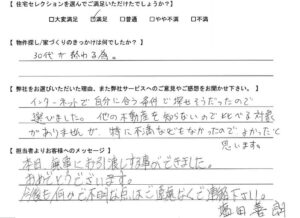 【 住宅セレクションを選んでご満足いただけたでしょうか？ 】
□大変満足 ☑満足 □普通 □やや不満 □不満
【 物件探し/家づくりのきっかけは何でしたか？ 】
30代が終わる為。
【 弊社をお選びいただいた理由、また弊社サービスへのご意見やご感想をお聞かせ下さい。 】
インターネットで自分に合う条件で探せそうだったので
選びました。他の不動産を知らないので比べる対象
がありませんが、特に不満などもなかったのでよかったと
思います。
【 担当者よりお客様へのメッセージ 】
本日無事にお引渡しする事ができました。
おめでとうございます。
今後も何かご不明な点はご遠慮なくご連絡下さい。